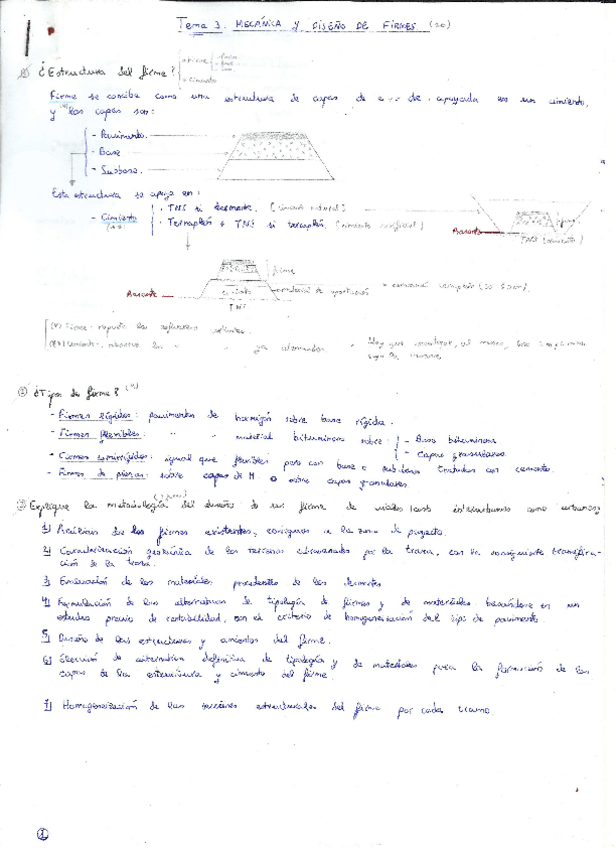 Tema 3. MECÁNICA Y DISEÑO DE FIRMES
① ¿Estructura del firme?
Firme
Cimiento
Firme se concibe como una estructura de capas de apoyada en un cimiento,
y las capas son:
- Pavimento.
- Base
- Subbase.
Esta estructura se apoya en:
- Cimiento
· TNS si desmonte. (cimiento natural)
· Terraplén + TNS si terraplén. (cimiento artificial)
Rasante
TNS (cimiento)
firme
cimiento
material de aportación
Rasante
TNS
(*) Firme: reparte los esfuerzos
② ¿Tipos de firme?
- Firmes rígidos: pavimentos de hormigón sobre base rígida.
- Firmes flexibles: " " material bituminoso sobre
- Base bituminosa
- Capas granulares.
- Firmes semirrígidos: igual que flexibles pero con base o subbase tratadas con cemento.
- Firmes de piezas: sobre capas de H o sobre capas granulares.
③ Explique la metodología del diseño de un firme de viales tanto interurbanos como urbanos
1) Análisis de los firmes existentes, contiguos a la zona de proyecto.
2) Caracterización geotécnica de los terrenos atravesados por la traza, con la consiguiente tramifica-
ción de la traza.
3) Evaluación de los materiales procedentes de los desmontes
4) Formulación de las alternativas de tipología de firmes y de materiales basándose en un
estudio previo de rentabilidad, con el criterio de homogeneización del tipo de pavimento.
5) Diseño de las estructuras y cimientos del firme.
6) Elección de alternativa definitiva de tipología y de materiales para la formación de las
capas de la estructura y cimiento del firme.
7) Homogeneización de las secciones estructurales del firme por cada tramo.
①